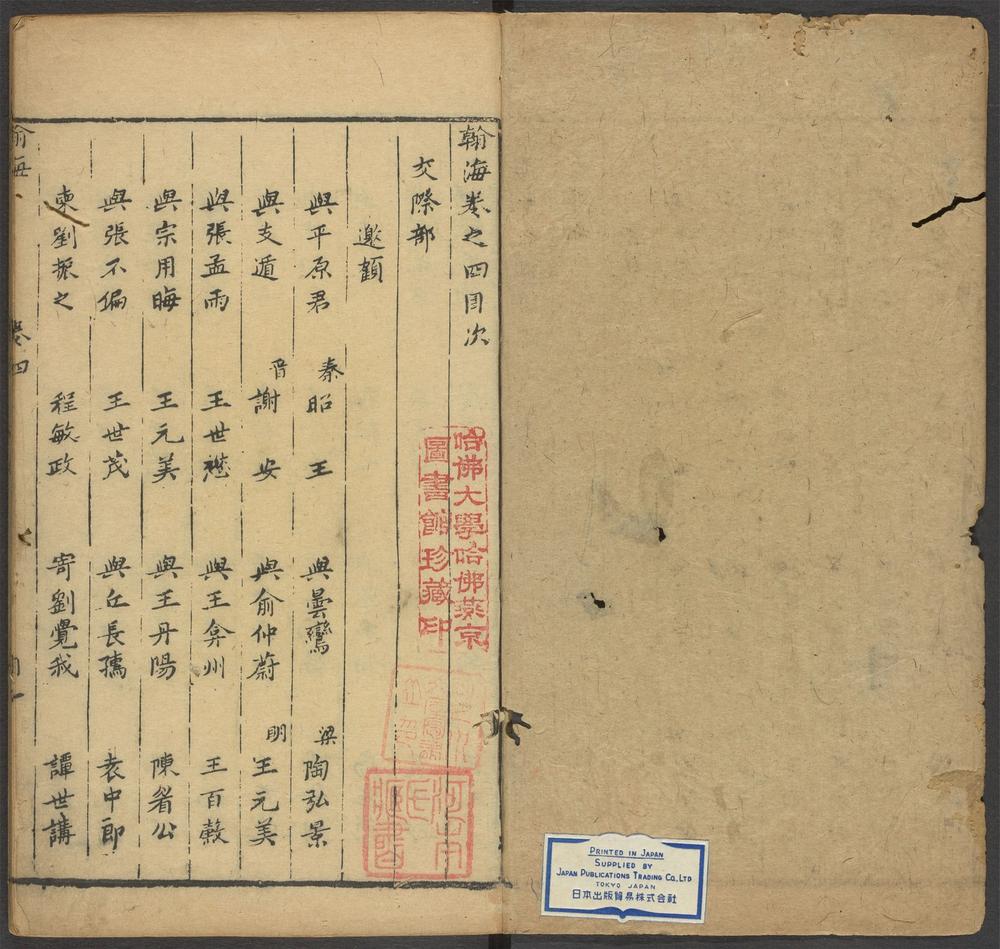 翰海卷之四目次
交際部
邀顧
與平原君 秦昭王 與曇鸞 梁陶弘景
與支遁 晉謝安 與俞仲蔚 明王元美
與張孟雨 王世懋 與王弇州 王百榖
與宗用晦 王元美 與王丹陽 陳眉公
與張不偏 王世茂 與丘長孺 袁中郎
柬劉振之 程敏政 寄劉覺我 譚世講
卷四
哈佛大學哈佛燕京
圖書館珍藏印
PRINTED IN JAPAN
SUPPLIED BY
JAPAN PUBLICATIONS TRADING CO., LTD
TOKYO JAPAN
日本出版貿易株式会社